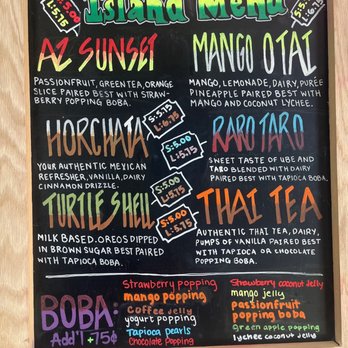 Island Menu
S:5.00
L:5.75
L:6.75
AZ SUNSET
PASSIONFRUIT, GREEN TEA, ORANGE
SLICE PAIRED BEST WITH STRAW-
BERRY POPPING BOBA.
MANGO OTAI
MANGO, LEMONADE, DAIRY, PURÉE
PINEAPPLE PAIRED BEST WITH
MANGO AND COCONUT LYCHEE.
S:5.75
L:6.75
HORCHATA
YOUR AUTHENTIC MEXICAN
REFRESHER, VANILLA, DAIRY
CINNAMON DRIZZLE.
S:5.00
L:5.75
RARO TARO
SWEET TASTE OF UBE AND
TARO BLENDED WITH DAIRY
PAIRED BEST WITH TAPIOCA BOBA.
S:5.00
L:5.75
TURTLE SHELL
MILK BASED. OREOS DIPPED
IN BROWN SUGAR BEST PAIRED
WITH TAPIOCA BOBA.
S:5.00
L:5.75
THAI TEA
AUTHENTIC THAI TEA, DAIRY,
PUMPS OF VANILLA PAIRED BEST
WITH TAPIOCA OR CHOCOLATE
POPPING BOBA.
BOBA:
Add'l +75¢
Strawberry popping
mango popping
coffee jelly
yogurt popping
Tapioca pearls
Chocolate popping
Strawberry coconut jelly
mango jelly
passionfruit
popping boba
Green apple popping
lychee coconut jelly